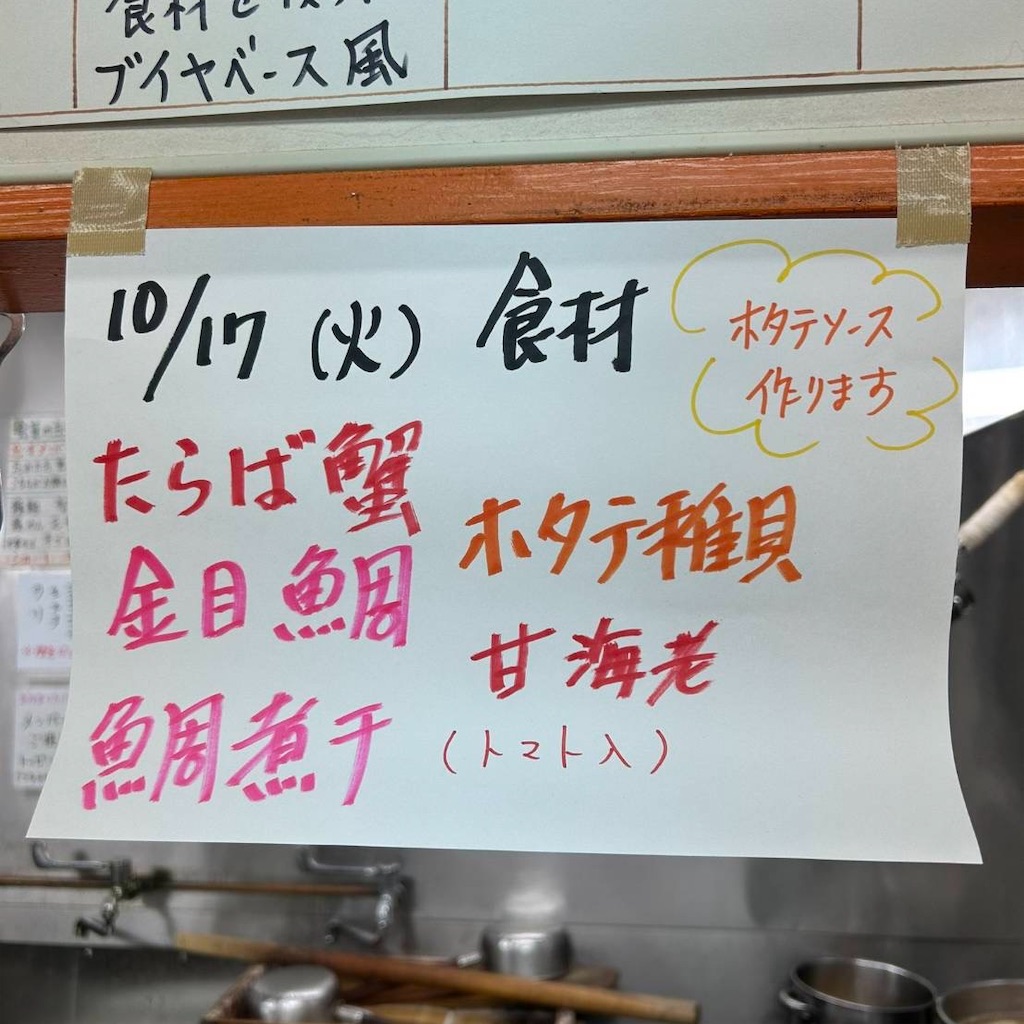 ブイヤベース風
10/17(火) 食材
ホタテソース
作ります
たらば蟹
金目鯛
鯛煮干
ホタテ稚貝
甘海老
(トマト入)